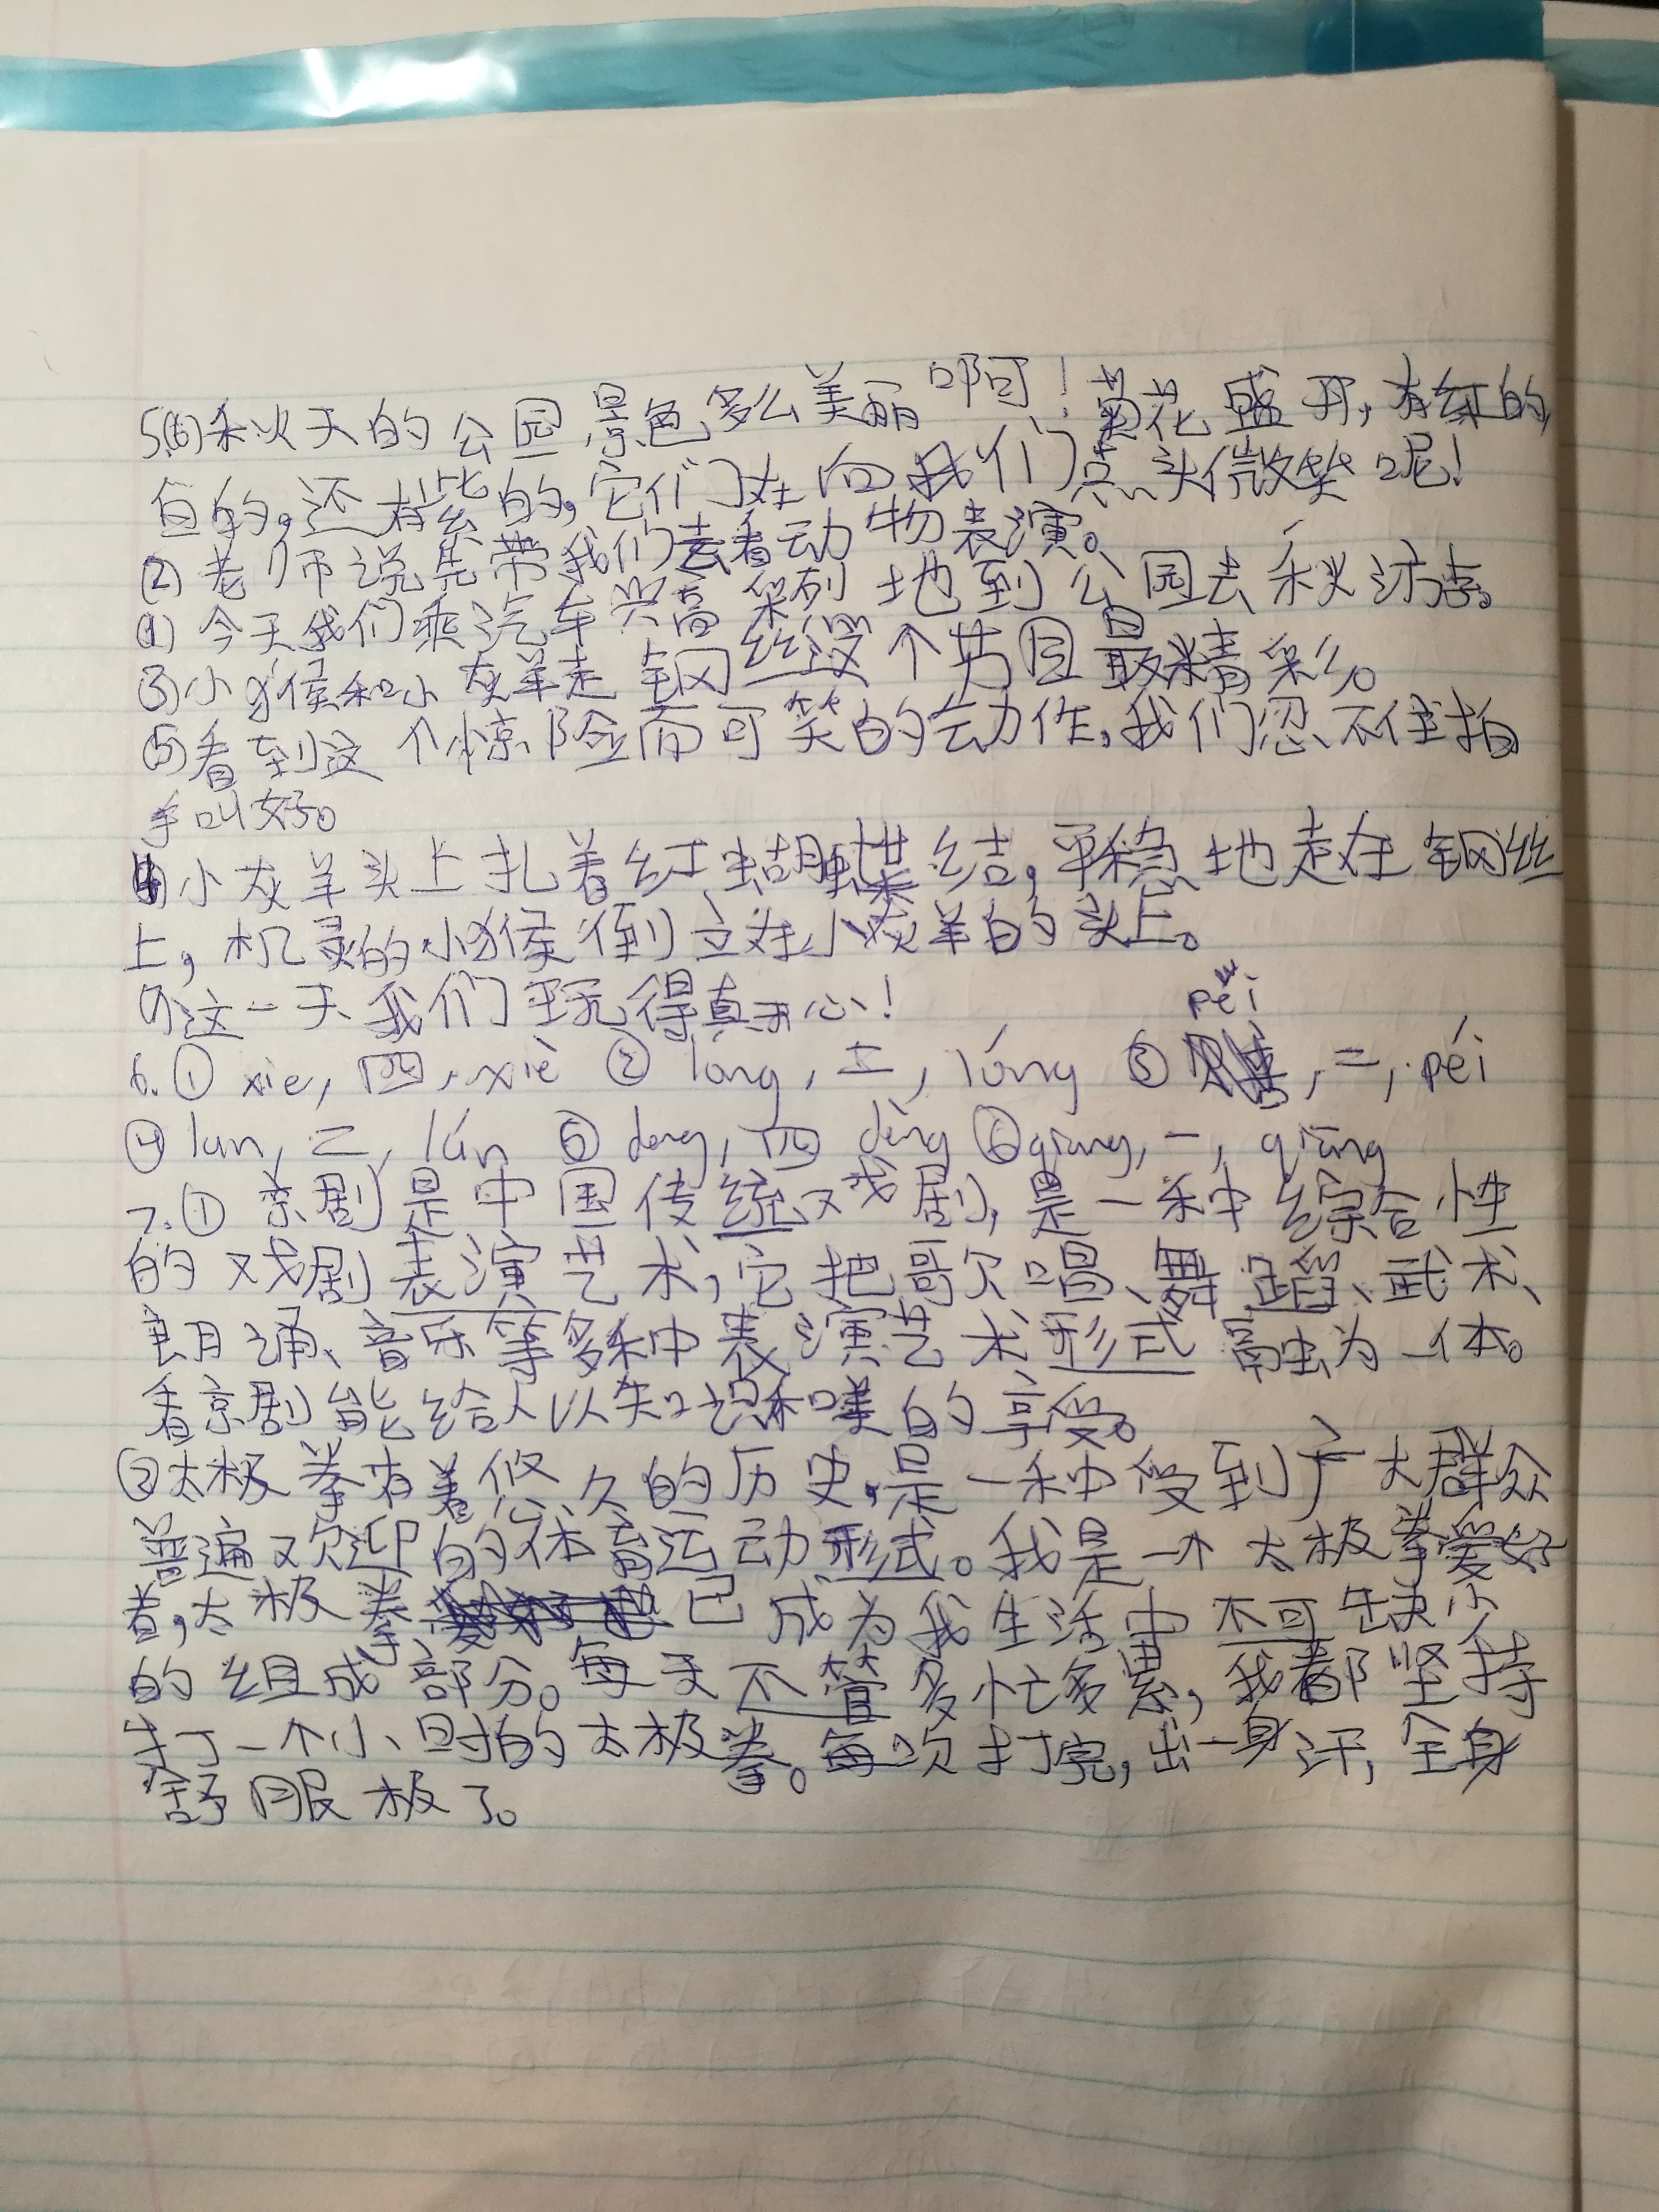 5.(6)秋天的公园景色多么美丽啊!菊花盛开,有红的
白的,还有紫的,它们在向我们点头微笑呢!
(2)老师说先带我们去看动物表演。
(1)今天我们乘汽车兴高采烈地到公园去秋游。
(3)小猴和小灰羊走钢丝这个节目最精彩。
(5)看到这个惊险而可笑的动作,我们忍不住拍
手叫好。
(4)小灰羊头上扎着红蝴蝶结,平稳地走在钢丝
上,机灵的小猴倒立在小灰羊的头上。
(7)这一天我们玩得真开心!
pēi
6.① xie,四,xiè ② long,二,lóng ③ ,二,péi
④ lun,二,lún ⑤ deng,四 dèng ⑥ qiang,一,qiāng
7.① 京剧是中国传统戏剧,是一种综合性
的戏剧表演艺术,它把歌唱、舞蹈、武术、
朗诵、音乐等多种表演艺术形式融为一体。
看京剧能给人以知识和美的享受。
②太极拳有着悠久的历史,是一种受到广大群众
普遍欢迎的体育运动形式。我是一个太极拳爱好
者,太极拳已成为我生活中不可缺少
的组成部分。每天不管多忙多累,我都坚持
打一个小时的太极拳。每次打完,出一身汗,全身
舒服极了。